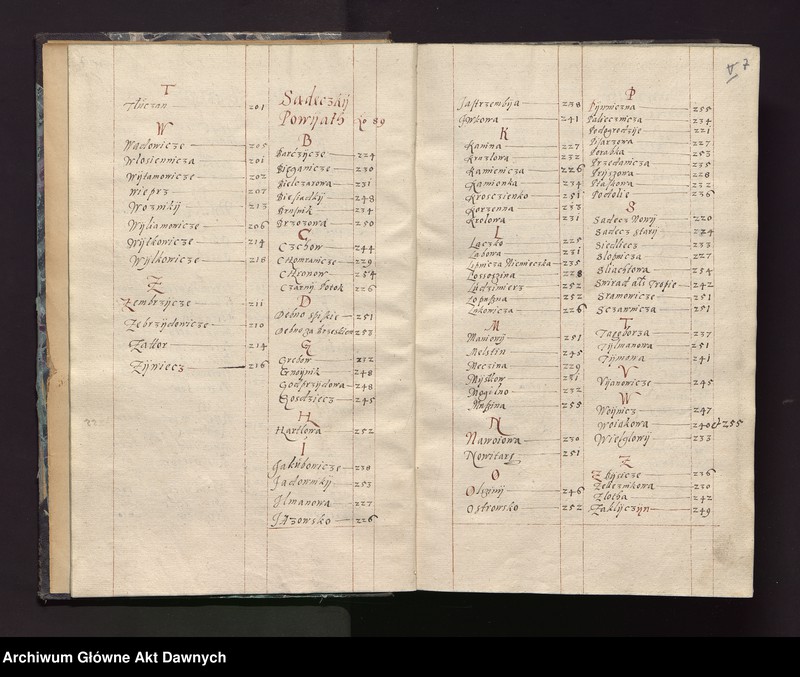 T
Tłuczan 201
W
Wadowicze 205
Włosiennicza 201
Wyłamowicze 202
Wieprz 207
Wozniky 213
Wyliamowicze 206
Wyłkowicze 214
Wylkowicze 218
Z
Zembrzycze 211
Zebrzydowicze 210
Zathor 214
Zywiecz 216
Sadeczkij
Powyath Ko 89
B
Barczycze 224
Bieganicze 230
Bielczarowa 231
Biesiadky 248
Brusnik 234
Brzozowa 250
C
Czchow 244
Chomranicze 229
Chronow 254
Czarny Potok 226
D
Debno 251
Debno za Brzeskiem 253
G
Grebow 232
Gnoynik 248
Godprzydowa 248
Gosdziecz 245
H
Harklowa 252
I
Jakubowicze 230
Jadowniky 253
Ilmanowa 227
Jazowsko 226
Jastrzembya 238
Iwkowa 241
K
Kanina 227
Kruzlowa 232
Kamienicza 226
Kamionka 234
Kroscienko 251
Korzenna 233
Krolowa 231
L
Laczko 225
Labowa 231
Lipnicza Niemieczka 235
Lossoszina 228
Ludzimierz 252
Lopuszna 252
Lukowicza 226
M
Maniowy 251
Melstin 245
Meczina 229
Mystkow 231
Mogilno 232
Mussina 255
N
Nawoiowa 230
Nowitarg 251
O
Olszyny 246
Ostrowsko 252
V 7
P
Pywniczna 255
Paliecznicza 234
Podegrodzye 221
Pisarzowa 227
Porabka 253
Przedanicza 235
Pryszowa 228
Ptaskowa 232
Podolie 236
S
Sadecz Nowy 220
Sadecz stary 224
Siedliecz 233
Slopnicza 227
Bliachowa 254
Swirad als Tropie 242
Sramowicze 251
Sczawnicza 251
T
Taegoborza 237
Tylmanowa 251
Tymowa 241
V
Vyanowicze 245
W
Woynicz 247
Woiakowa 240 et 255
Wielglowy 233
Z
Zbyszicze 236
Zeleznikowa 230
Zlotha 242
Zaklyczyn 249
Archiwum Główne Akt Dawnych